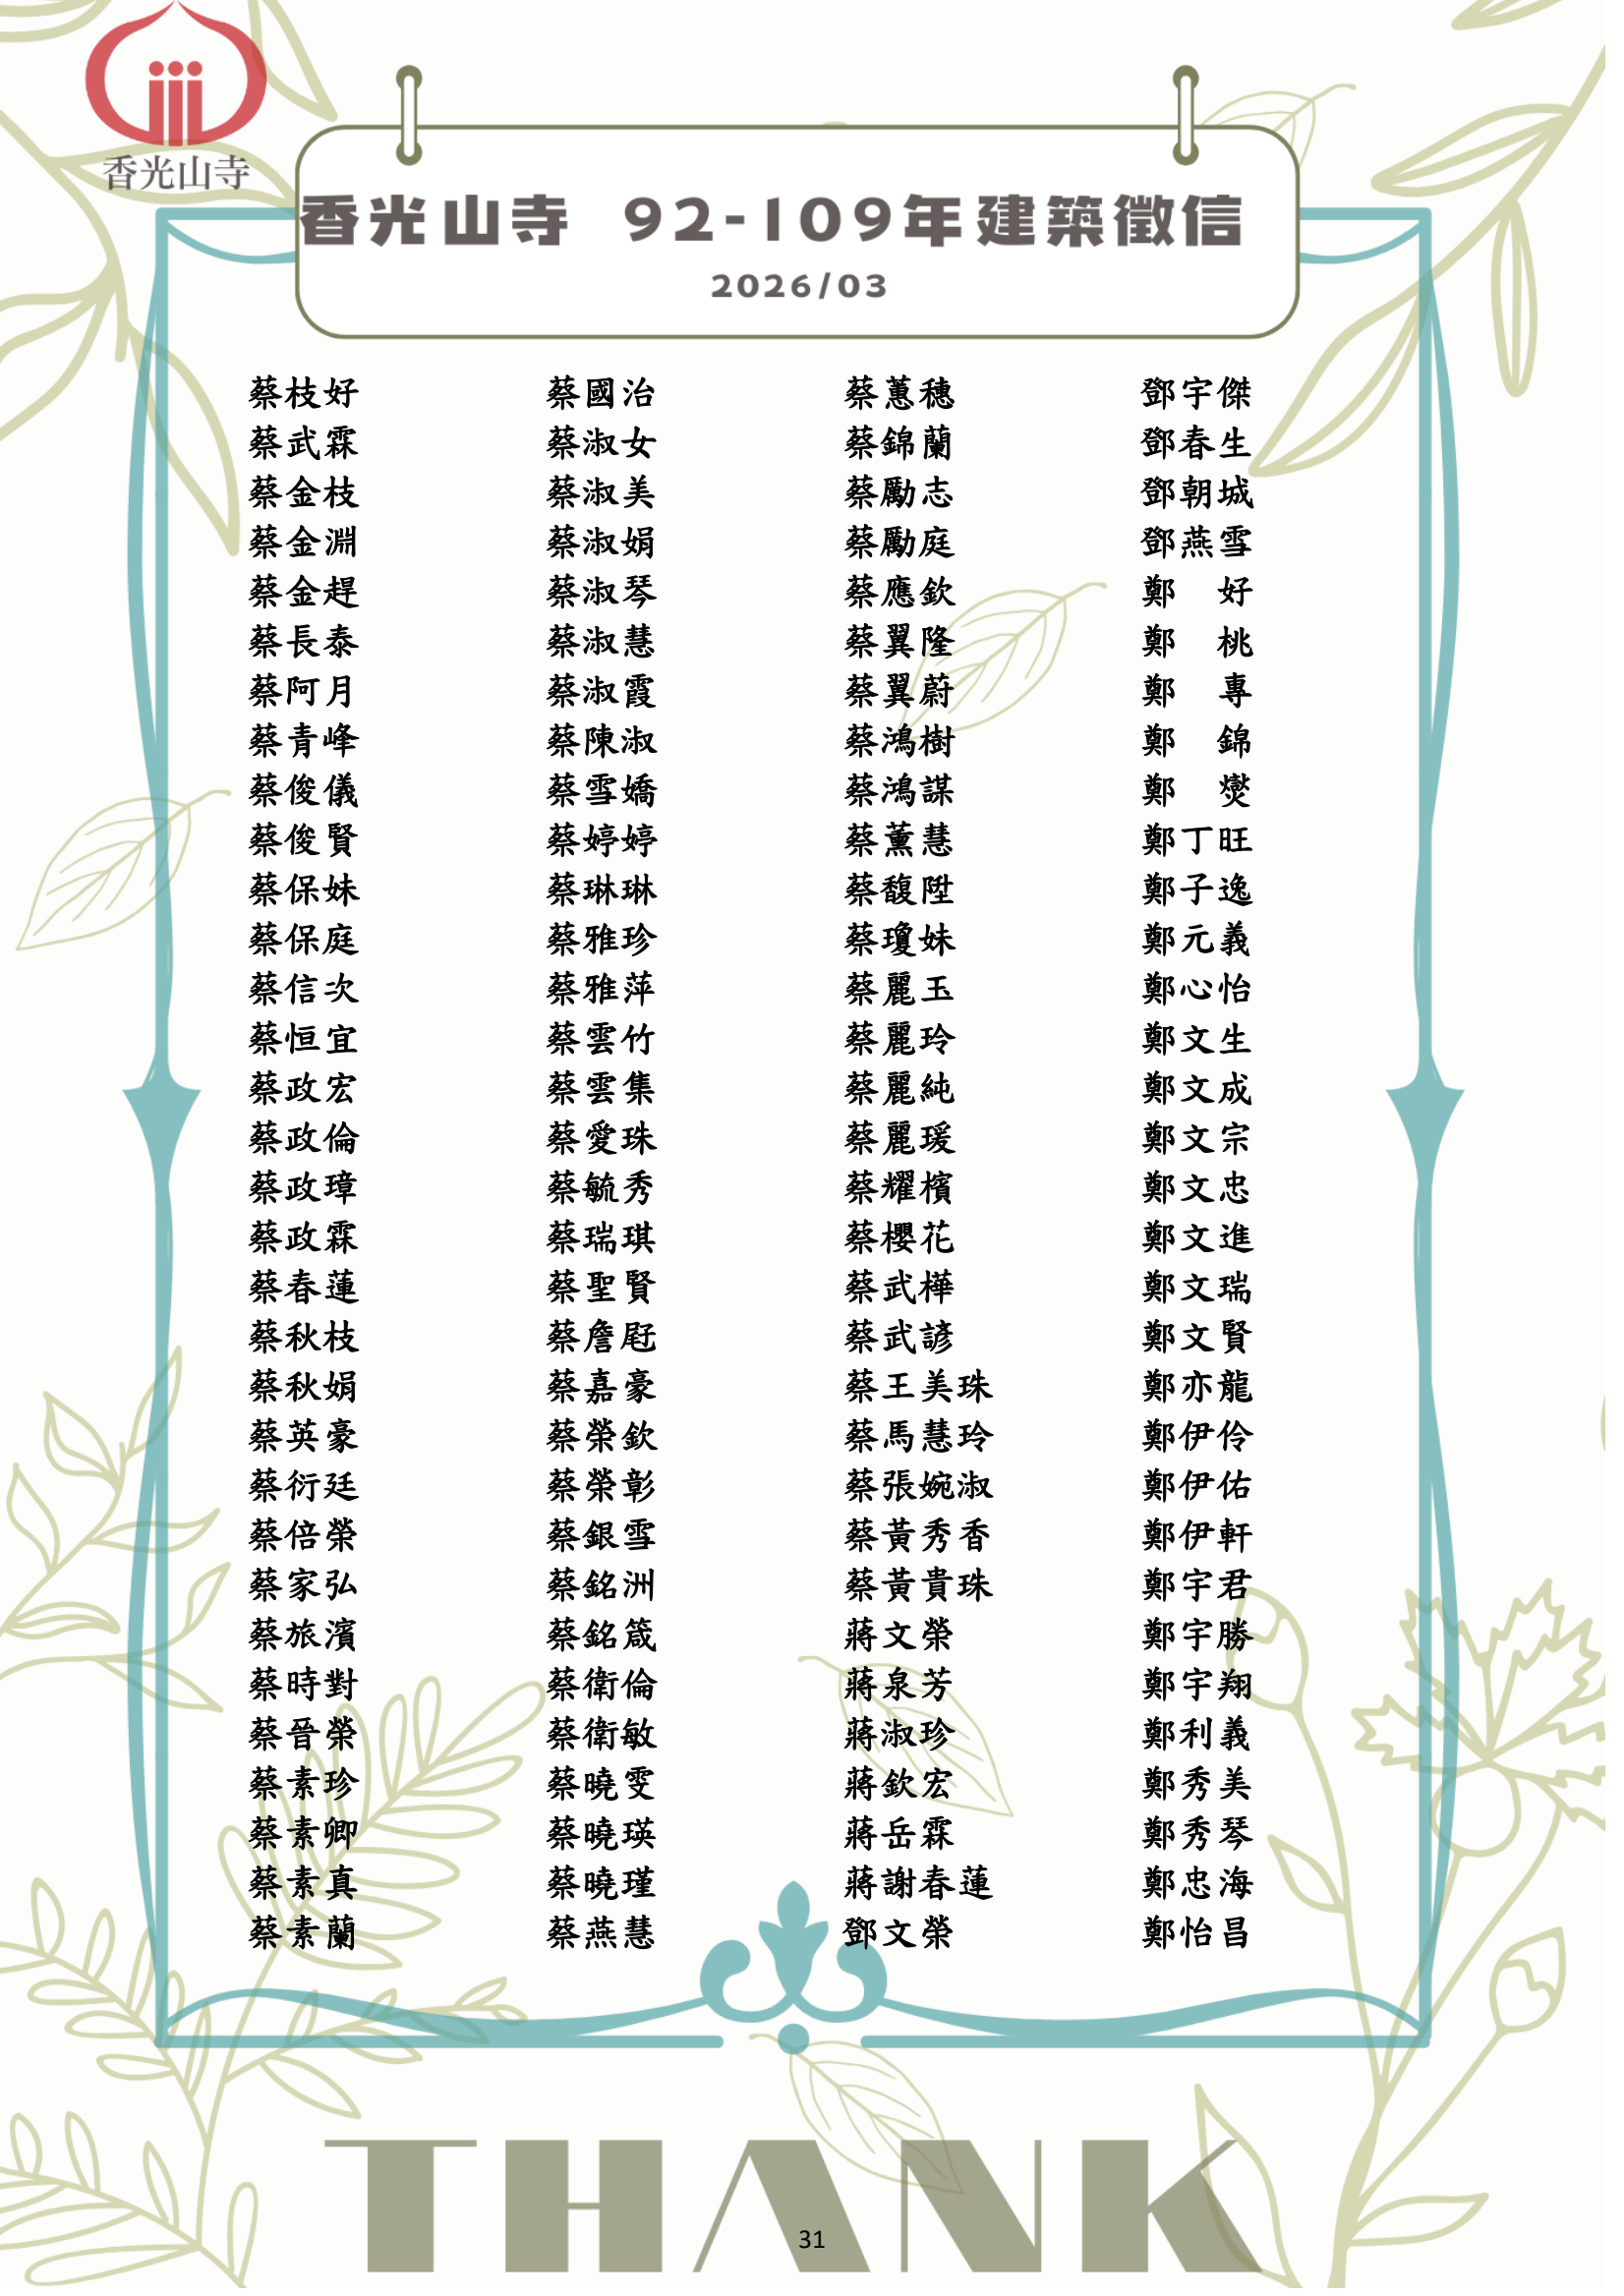 香光山寺
香光山寺 92-109年建築徵信
2026/03
蔡枝好 蔡國治 蔡蕙穗 鄧宇傑
蔡武霖 蔡淑女 蔡錦蘭 鄧春生
蔡金枝 蔡淑美 蔡勵志 鄧朝城
蔡金淵 蔡淑娟 蔡勵庭 鄧燕雪
蔡金趕 蔡淑琴 蔡應欽 鄭　好
蔡長泰 蔡淑慧 蔡翼隆 鄭　桃
蔡阿月 蔡淑霞 蔡翼蔚 鄭　專
蔡青峰 蔡陳淑 蔡鴻樹 鄭　錦
蔡俊儀 蔡雪嬌 蔡鴻謀 鄭　爕
蔡俊賢 蔡婷婷 蔡薰慧 鄭丁旺
蔡保妹 蔡琳琳 蔡馥陞 鄭子逸
蔡保庭 蔡雅珍 蔡瓊妹 鄭元義
蔡信次 蔡雅萍 蔡麗玉 鄭心怡
蔡恒宜 蔡雲竹 蔡麗玲 鄭文生
蔡政宏 蔡雲集 蔡麗純 鄭文成
蔡政倫 蔡愛珠 蔡麗瑗 鄭文宗
蔡政璋 蔡毓秀 蔡耀檳 鄭文忠
蔡政霖 蔡瑞琪 蔡櫻花 鄭文進
蔡春蓮 蔡聖賢 蔡武樺 鄭文瑞
蔡秋枝 蔡詹 蔡武諺 鄭文賢
蔡秋娟 蔡嘉豪 蔡王美珠 鄭亦龍
蔡英豪 蔡榮欽 蔡馬慧玲 鄭伊伶
蔡衍廷 蔡榮彰 蔡張婉淑 鄭伊佑
蔡倍榮 蔡銀雪 蔡黃秀香 鄭伊軒
蔡家弘 蔡銘洲 蔡黃貴珠 鄭宇君
蔡旅濱 蔡銘箴 蔣文榮 鄭宇勝
蔡時對 蔡衛倫 蔣泉芳 鄭宇翔
蔡晉榮 蔡衛敏 蔣淑珍 鄭利義
蔡素珍 蔡曉雯 蔣欽宏 鄭秀美
蔡素卿 蔡曉瑛 蔣岳霖 鄭秀琴
蔡素真 蔡曉瑾 蔣謝春蓮 鄭忠海
蔡素蘭 蔡燕慧 鄧文榮 鄭怡昌
THANK
31